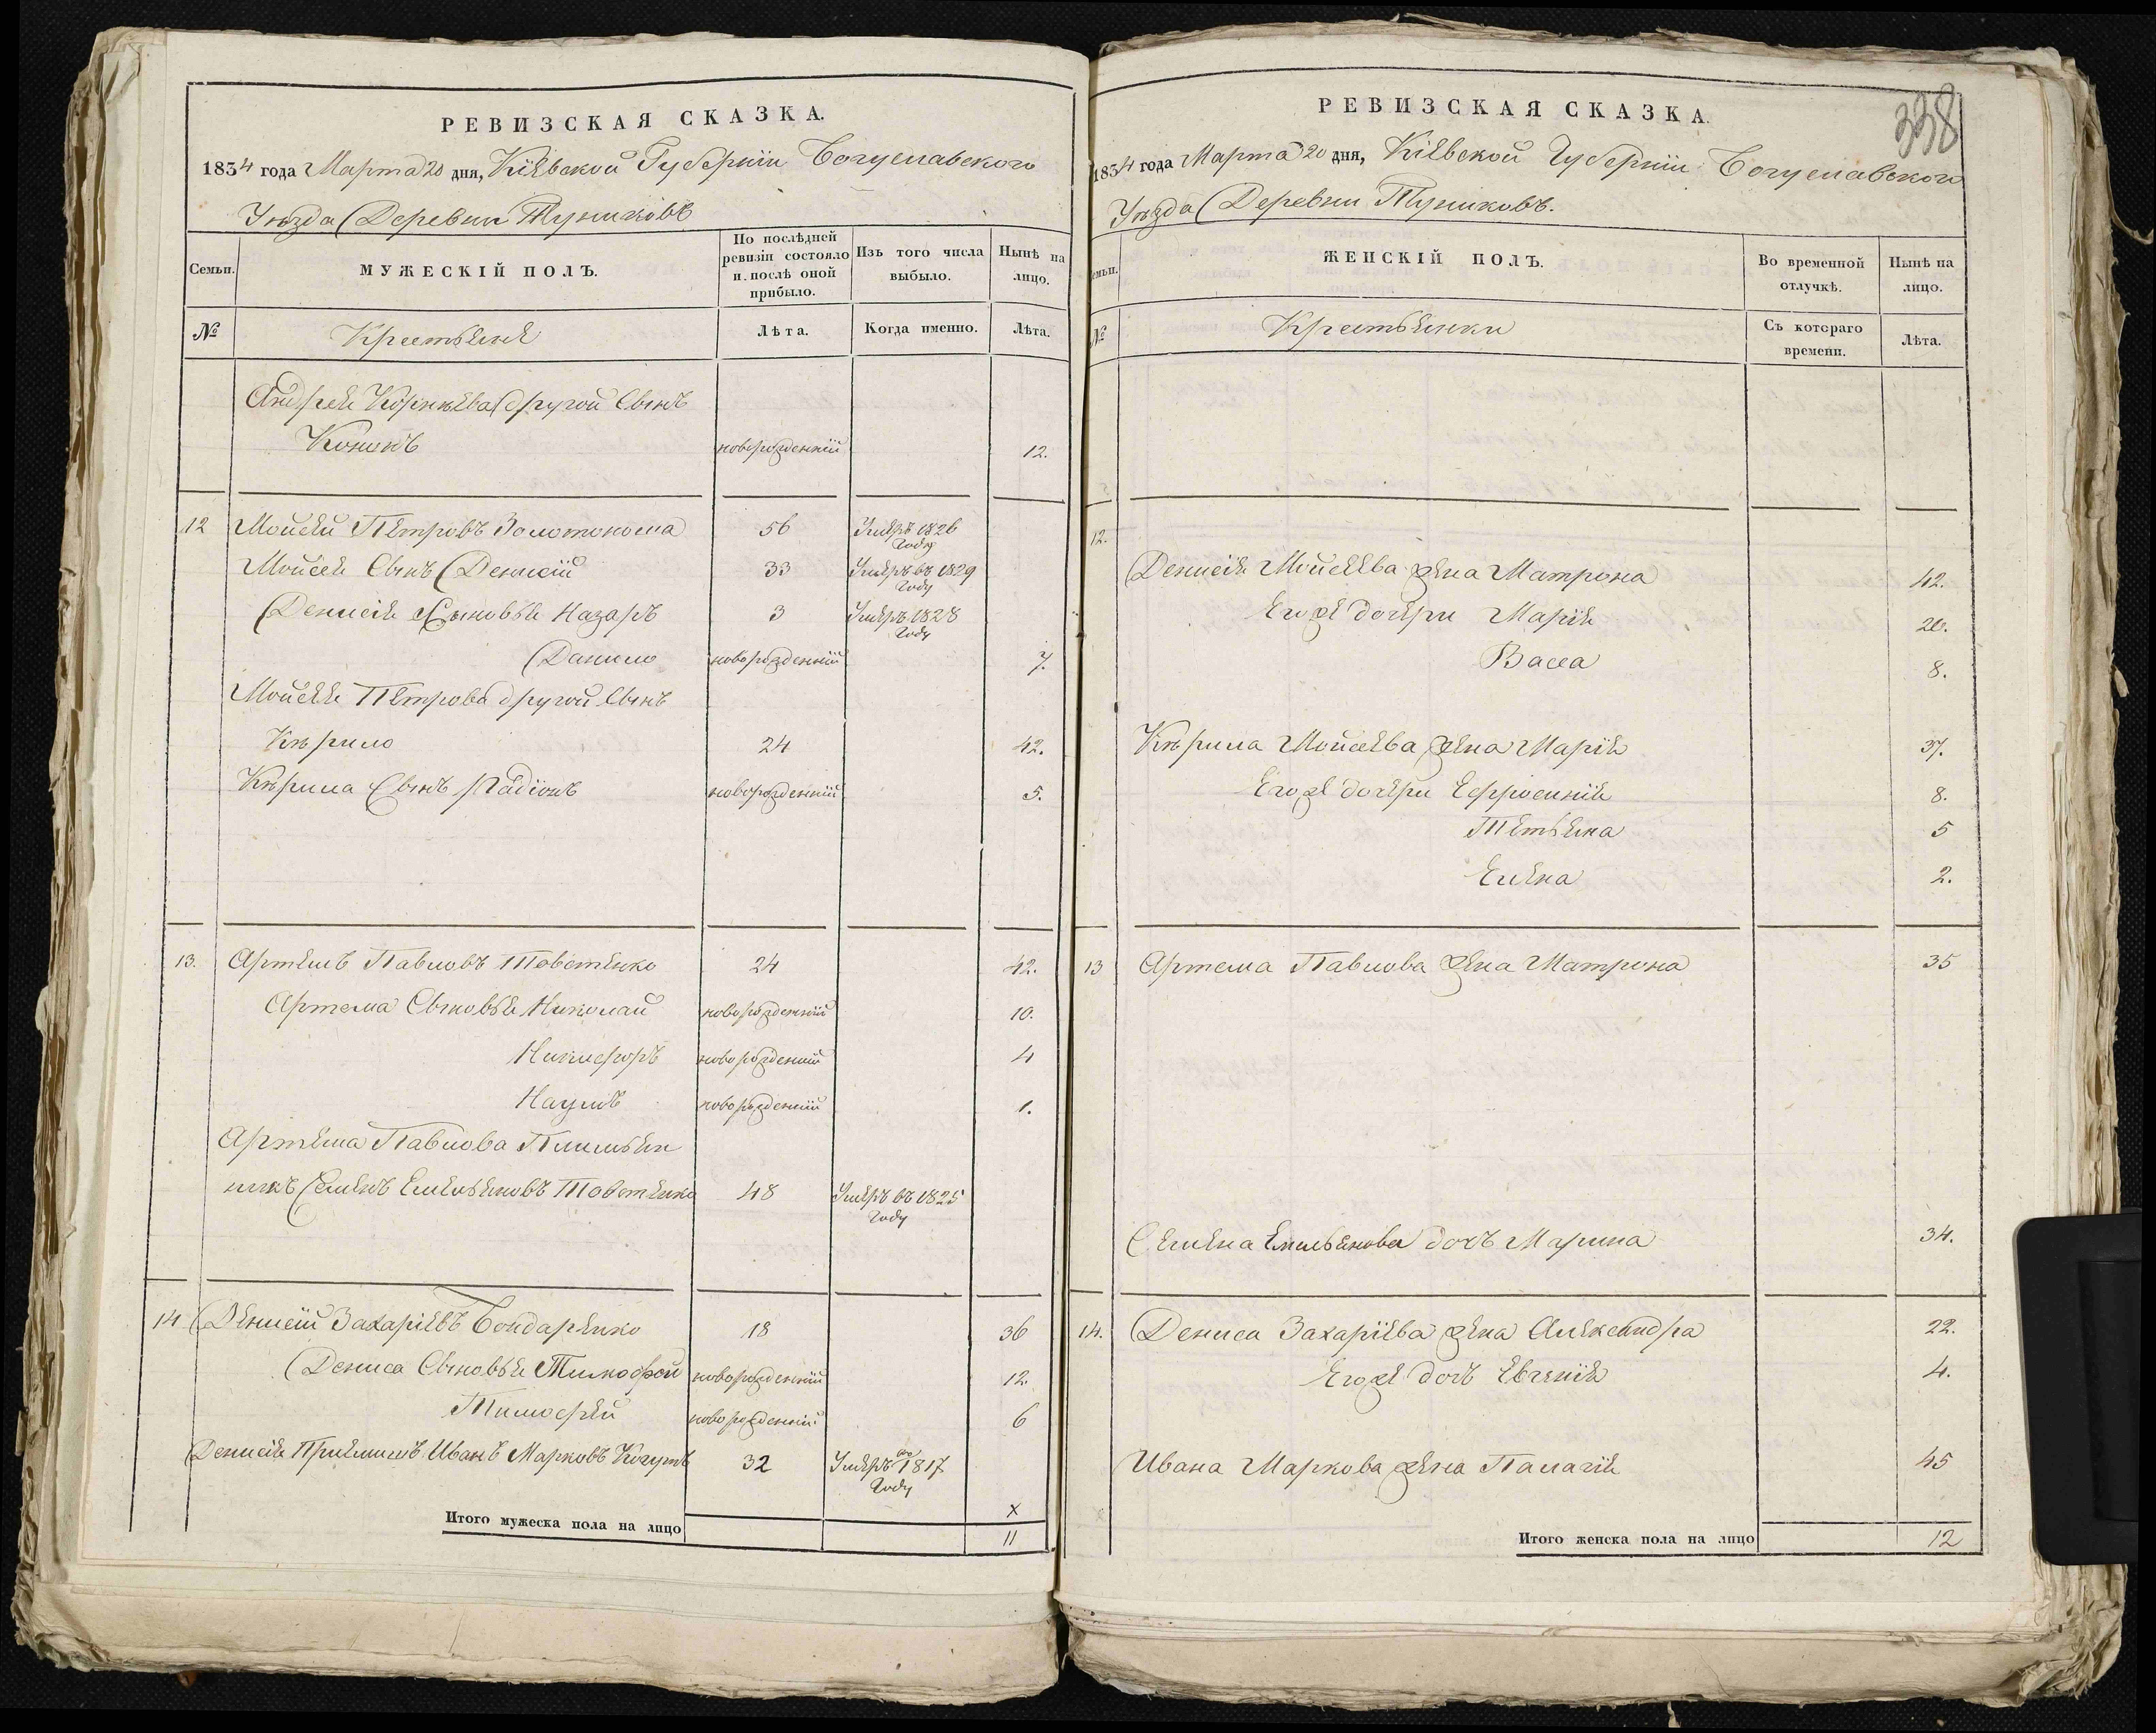 РЕВИЗСКАЯ СКАЗКА.
1834 года Марта 20 дня, Кіевской Губерніи Богуславского
Уѣзда Деревни Туниковъ
Семьи.
МУЖЕСКІЙ ПОЛЪ.
По послѣдней ревизіи состояло и послѣ оной прибыло.
Изъ того числа выбыло.
Нынѣ на лицо.
№
Крестьяне
Лѣта.
Когда именно.
Лѣта.
Андрея Корнѣева другой Сынъ
Кононъ новорожденній 12.
12 Мойсей Петровъ Золотоноша 56 Умеръ 1826 Году
Мойсея Сынъ Денисій 33 Умеръ въ 1829 Году
Денисія Сыновья Назаръ 3 Умеръ 1828 Году
Данило новорожденній 7.
Мойсея Петрова другой Сынъ
Кѣрило 24 42.
Кѣрила Сынъ Радіонъ новорожденній 5.
13. Артемъ Павловъ Товстенко 24 42.
Артема Сыновья Николай новорожденній 10.
Никифоръ новорожденній 4
Наумъ новорожденній 1.
Артема Павлова Племьян
никъ Семенъ Емельяновъ Товстенко 48 Умеръ въ 1825 Году
14 Денисій Захаріевъ Бондаренко 18 36
Дениса Сыновья Тимофей новорожденній 12.
Тимофей новорожденній 6
Денисія Приемишъ Иванъ Марковъ Когутъ 32 Умеръ въ 1817 Году
x
Итого мужеска пола на лицо 11
338
РЕВИЗСКАЯ СКАЗКА.
1834 года Марта 20 дня, Кіевской Губерніи Богуславского
Уѣзда Деревни Туниковъ.
Семьи.
ЖЕНСКІЙ ПОЛЪ.
Во временной отлучкѣ.
Нынѣ на лицо.
№
Крестьянки
Съ котораго времени.
Лѣта.
12.
Денисія Мойсеева жена Матрона 42.
Егоже дочери Марія 20.
Васса 8.
Кѣрила Мойсеева жена Марія 37.
Егоже дочери Ефросинія 8.
Тетьяна 5
Елена 2.
13 Артема Павлова жена Матрона 35
Семена Емельянова дочъ Марина 34.
14. Дениса Захаріева жена Александра 22.
Егоже дочъ Евгенія 4.
Ивана Маркова жена Палагія 45
Итого женска пола на лицо 12